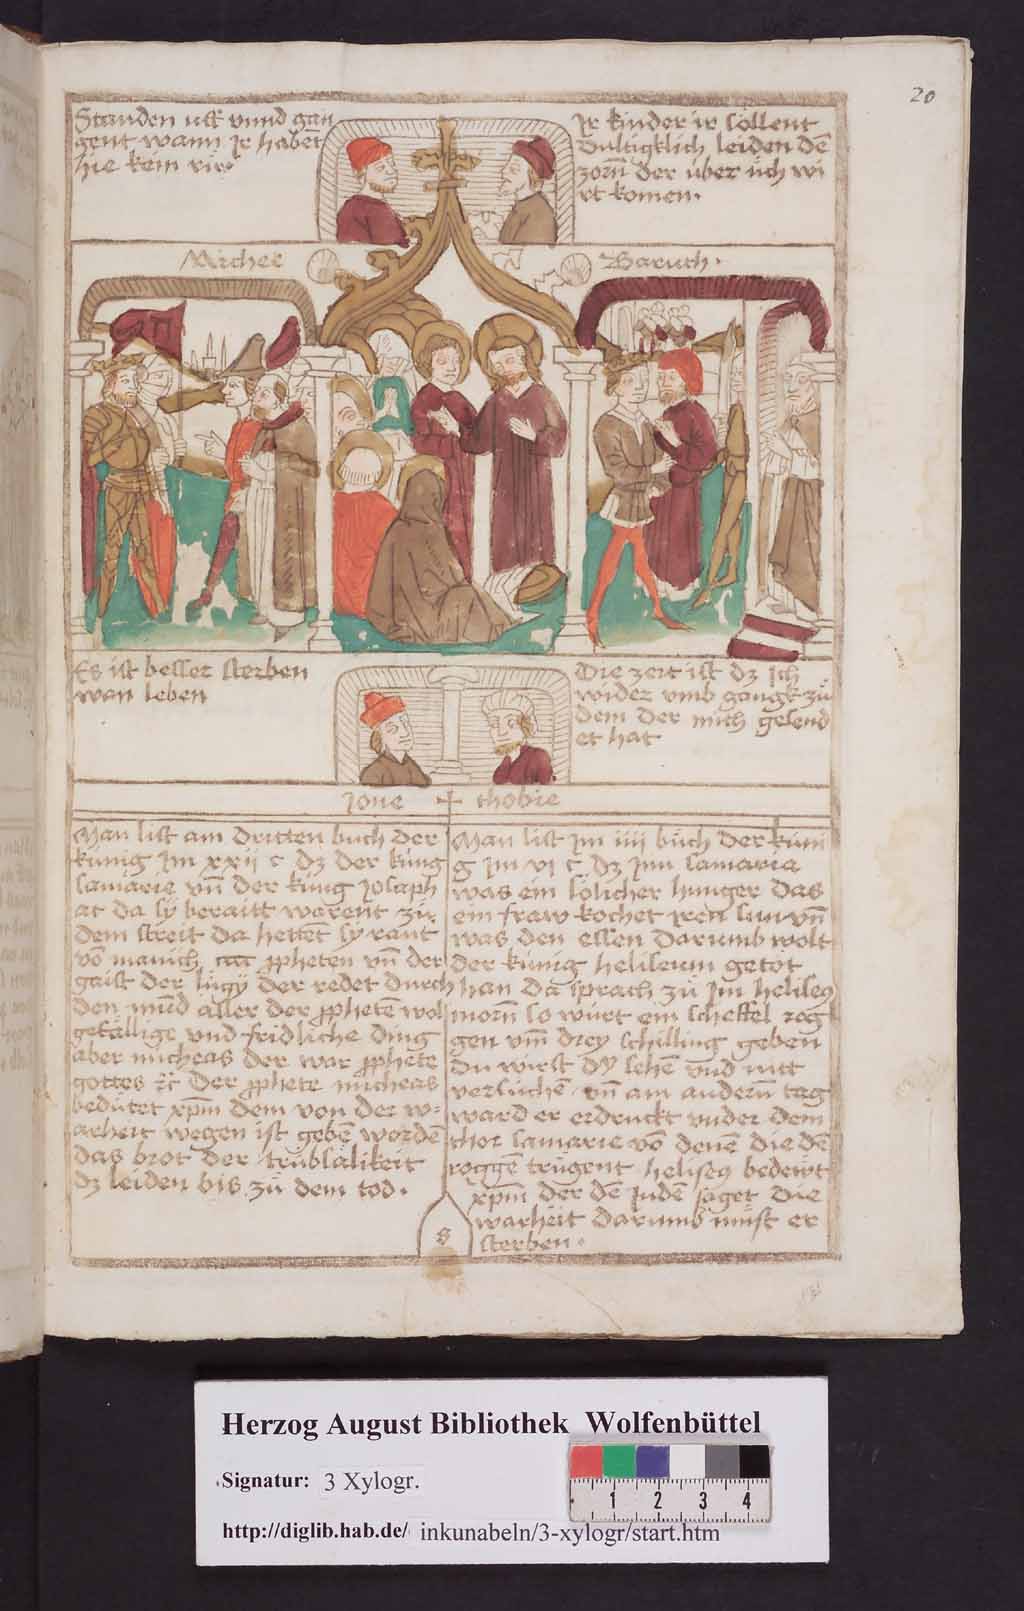 20
Standen uff vnnd gan
gent wann jr habēt
hie kein rů
Jr kinder ir söllent
dultigklich leiden dē
zorn der über üch wi
rt komen.
Michee
Baruch.
Es ist besser sterben
wan leben
Die zeit ist dz ich
wider vmb gangk zů
dem der mich gesend
et hat
Jone
thobie
Man list am dritten buch der
künig jm xxij c dz der king
samarie vñ der king Josaph
at da sÿ beraitt warent zů
dem streit da hettet sy raut
vō manich cccc ppheten vñ der
gaist der lúgÿ der redet durch
den mūd aller der pphetē wol
gefällige vnd fridliche ding
aber micheas der war pphete
gottes ꝛc Der pphete micheas
bedütet xpm dem von der w=
arheit wegen ist gebē wordē
das brot der trůbsälikeit
dz leiden bis zů dem tod.
Man list jm iiij bůch der küni
g jm vj c dz jnn samaria
was ein sölicher hunger das
ein fraw kochet jren sun vñ
was den essen Darumb wolt
der künig heliseum getöt
han da sprach zů jm heliseꝰ
morn so würt ein scheffel rog
gen vm drey schilling geben
du wirst dÿ sehē vnd nitt
versůchē vñ am andern tag
ward er erdruckt vnder dem
thor samarie vō denē die dē
roggē trůgent heliseꝰ bedewt
xpm der dē judē saget die
warheit darumb můst er
sterben.
s
Herzog August Bibliothek Wolfenbüttel
Signatur: 3 Xylogr.
1 2 3 4
http://diglib.hab.de/ inkunabeln/3-xylogr/start.htm